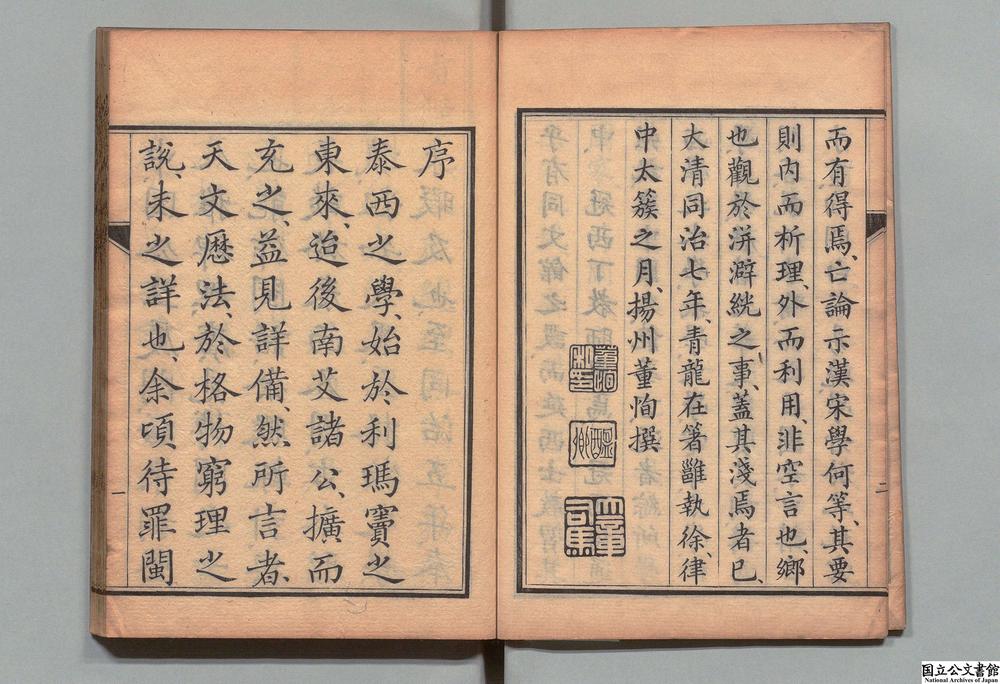 而有得焉、亡論示漢宋學何等、其要
則内而析理、外而利用、非空言也、鄉
也觀於洴澼絖之事、蓋其淺焉者已、
大清同治七年、青龍在箸雝執徐、律
中太簇之月、揚州董恂撰
董恂
私印
醖卿
大童
司馬
二
序
泰西之學、始於利瑪竇之
東來、迨後南艾諸公、擴而
充之、益見詳備、然所言者、
天文厯法、於格物窮理之
說、未之詳也、余頃待罪閩
一
国立公文書館
National Archives of Japan